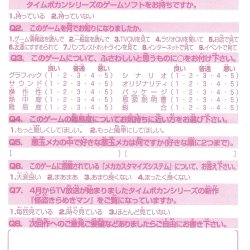 タイムボカンシリーズのゲームソフトをお持ちですか。
1.持っている 2.持っていない
Q2. このゲームを何でお知りになりましたか。
1.ゲーム情報誌を読んで 2.一般誌を読んで 3.TVCMを見て 4.ラジオCMを聞いて 5.お店で見て
6.友達にすすめられて 7.バンプレストホットラインを見て 8.インターネットで見て 9.イベントで見て
Q3. このゲームについて、ふさわしいと思うものに○をお付け下さい。
良い 普通 悪い 良い 普通 悪い
グラフィック (1・2・3・4・5) シナリオ (1・2・3・4・5)
サウンド (1・2・3・4・5) オリジナリティ (1・2・3・4・5)
操作性 (1・2・3・4・5) パッケージ (1・2・3・4・5)
熱中度 (1・2・3・4・5) 取扱説明書 (1・2・3・4・5)
難易度 (1・2・3・4・5) 総合 (1・2・3・4・5)
Q4. このゲームの難易度についてお気持ちに近い方をお選び下さい。
1.もっと難しくてほしい。 2.もっと簡単にしてほしい。
Q5. 悪玉メカの中で好きな悪玉メカは何ですか(好きな順に2つまで)。
Q6. このゲームに搭載されている「メカカスタマイズシステム」について、お答え下さい。
1.大変良い 2.まあまあ 3.あまり良くない 4.まったく良くない
Q7. 4月からTV放送が始まりましたタイムボカンシリーズの新作
「怪盗きらめきマン」をご覧になっていますか。
1.毎回見ている 2.時々見ている 3.ほとんど見ていない
Q8. 次回作へのご意見ご要望などありましたらご自由にお書き下さい。